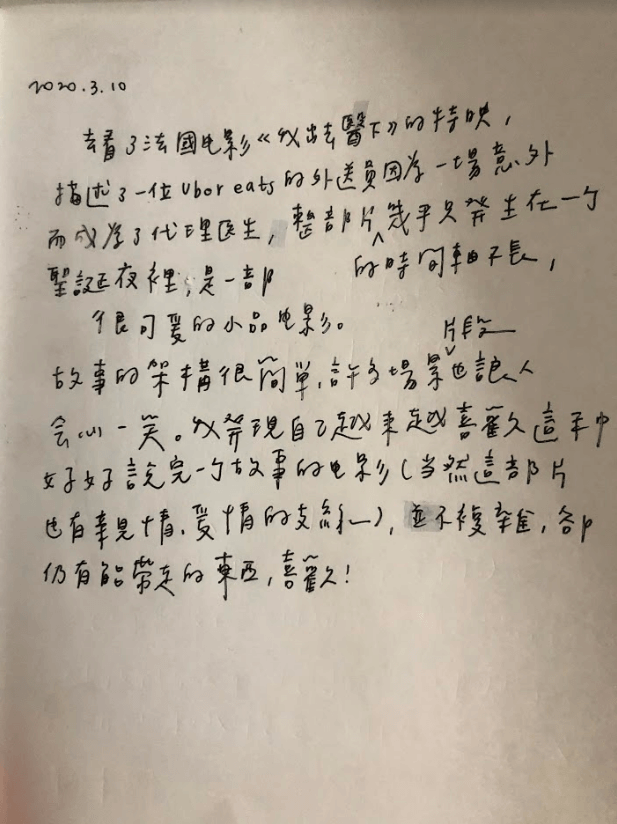 2020.3.10
去看了法國电影《出去醫下》的特映，
描述了一位Uber eats的外送員因為一場意外
而成為了代理医生，整部片幾乎只發生在一个
的時間軸不長，
聖誕夜裡，是一部
很可愛的小品电影。
片段
故事的架構很簡單，許多場景也讓人
会心一笑。我發現自己越來越喜歡這种
好好說完一个故事的电影（当然這部片
也有親情、愛情的支線），並不複雜，卻
仍有能帶走的東西，喜歡！